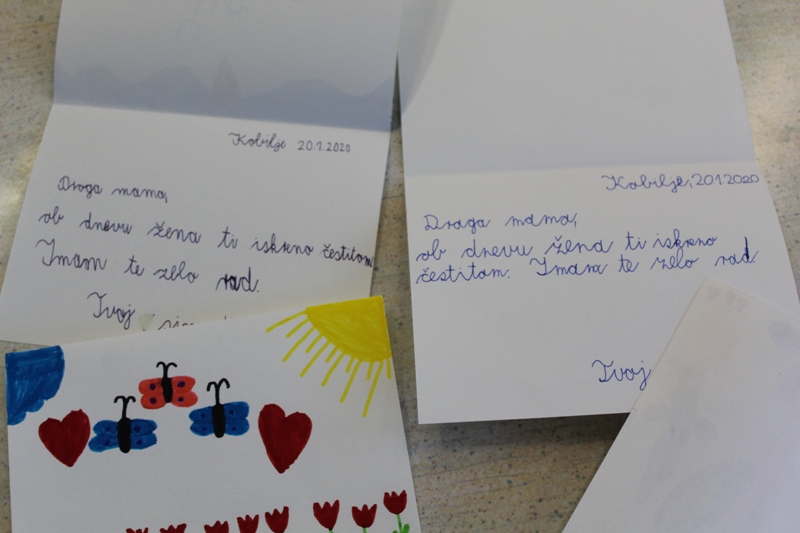 Kobilje 20.1.2020
Draga mama,
ob dnevu žena ti iskreno čestitam.
Imam te zelo rad.
Tvoj
Kobilje, 20.1.2020
Draga mama,
ob dnevu žena ti iskreno
čestitam. Imam te zelo rad.
Tvoj